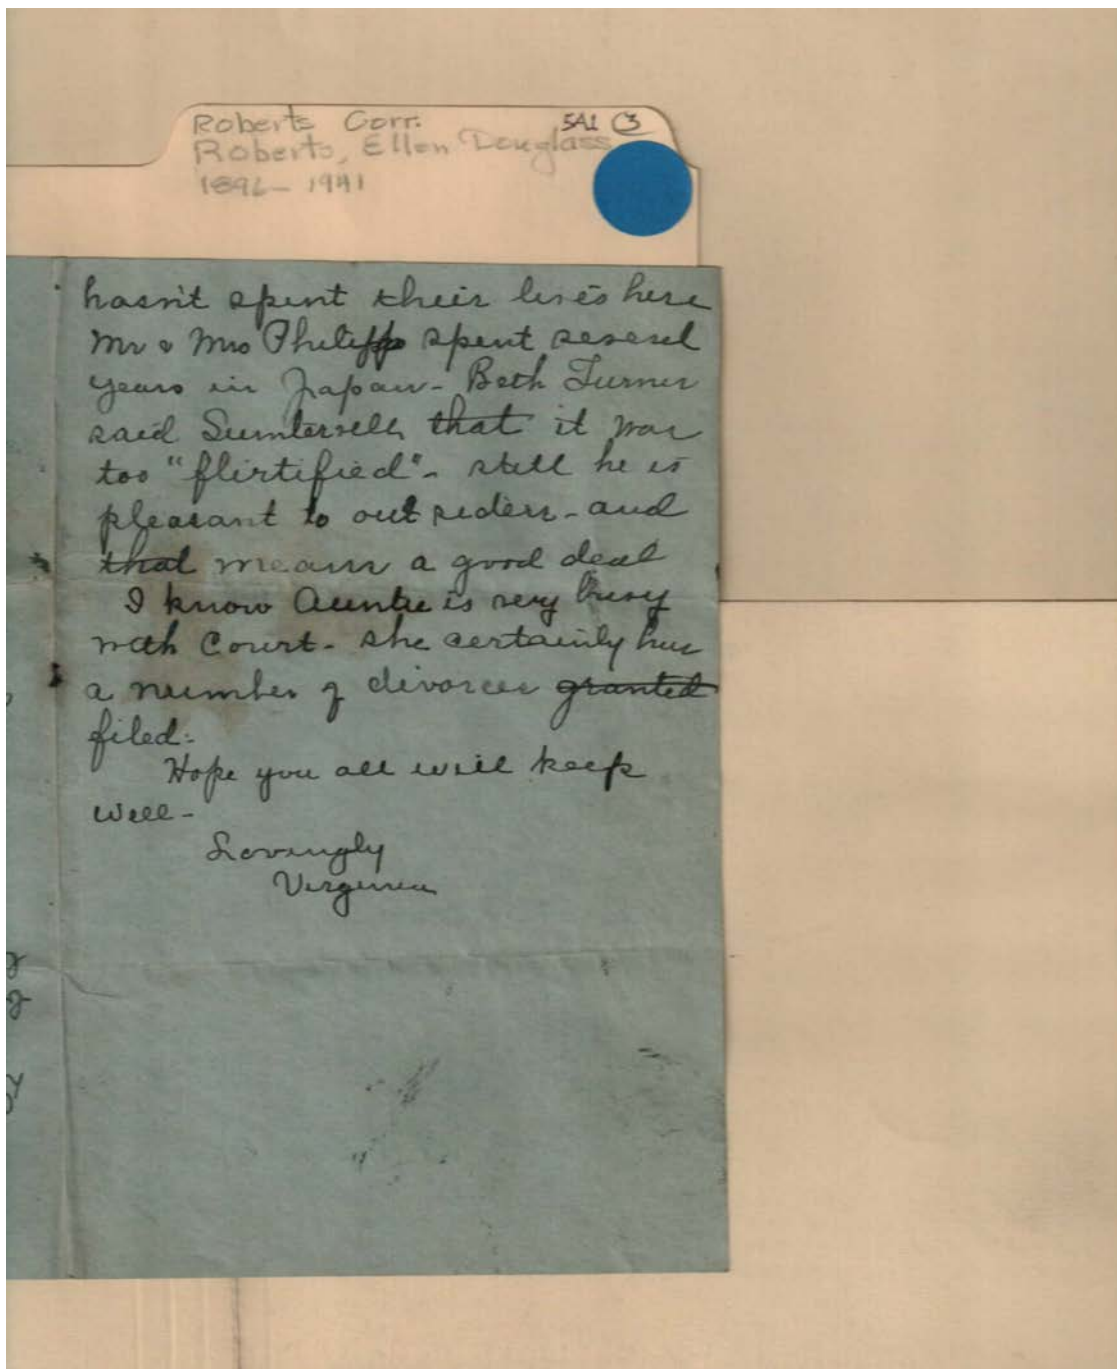 Roberts Corr. 5A1 3
Roberts, Ellen Douglass
1896-1941
hasn't spent their lives here
Mr & Mrs Philipps spent several
years in Japan - Beth Turner
said that it was
too "flirtified" - still he is
pleasant to out siders - and
that means a good deal
I know Auntie is very busy
with Court - she certainly has
a number of divorces granted
filed -
Hope you all will keep
well -
Lovingly
Virginia